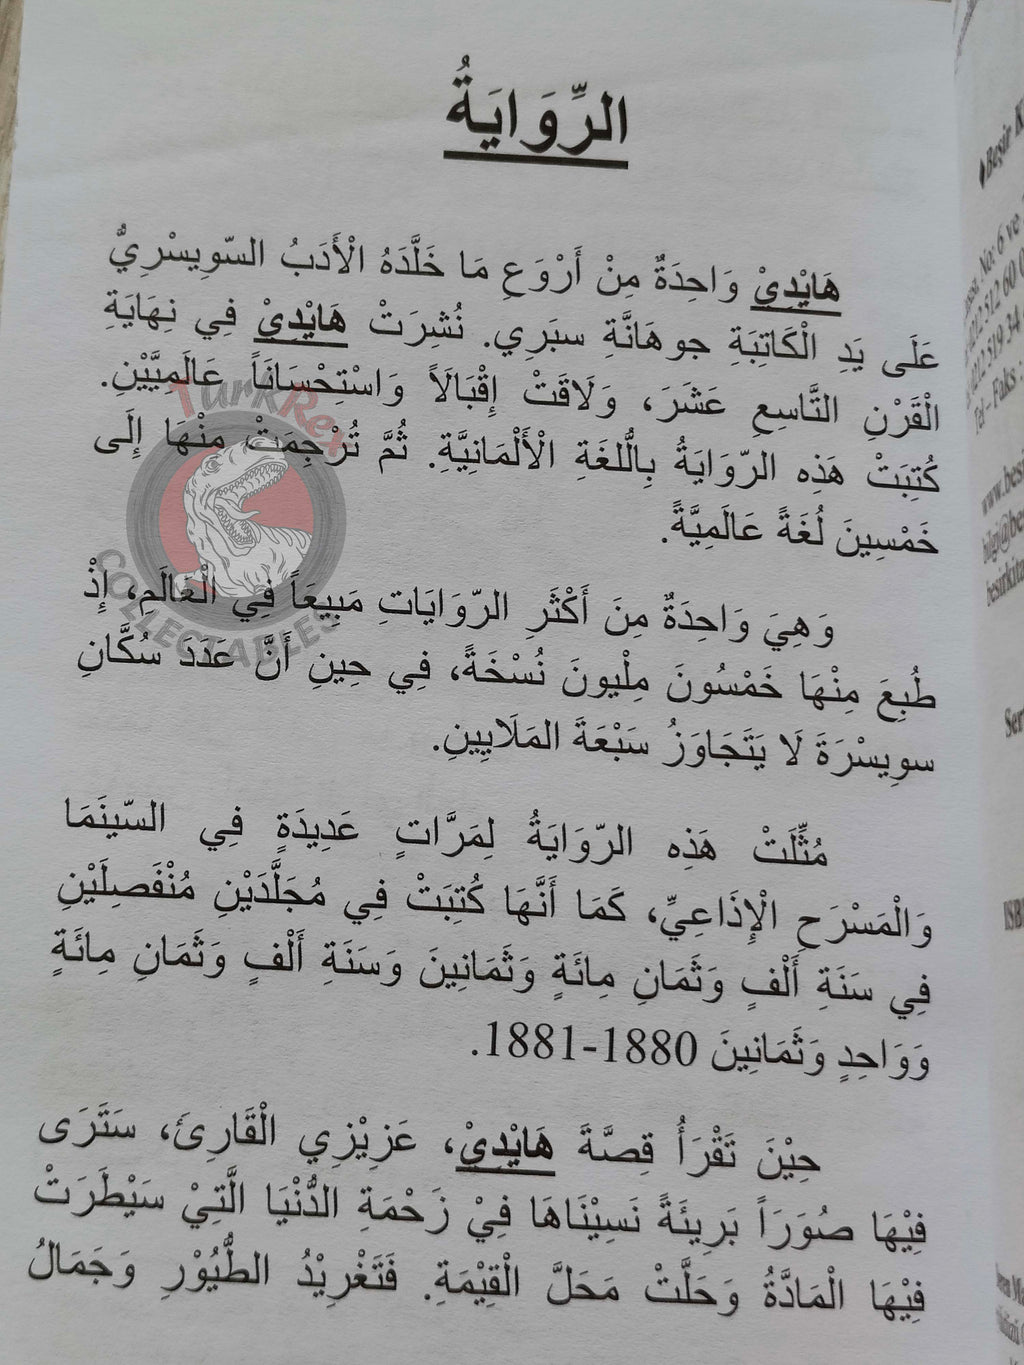 الرِّوَايَةُ
هَايْدِيْ وَاحِدَةٌ مِنْ أَرْوَعِ مَا خَلَّدَهُ الْأَدَبُ السّوِيسْرِيُّ
عَلَى يَدِ الْكَاتِبَةِ جوهَانَّةِ سبَرِي. نُشِرَتْ هَايْدِيْ فِي نِهَايَةِ
الْقَرْنِ التَّاسِعِ عَشَرَ، وَلَاقَتْ إِقْبَالَاً وَاسْتِحْسَانَاً عَالَمِيَّيْنِ.
كُتِبَتْ هَذِه الرّوَايَةُ بِاللُّغَةِ الْأَلْمَانِيَّةِ. ثُمَّ تُرْجِمَتْ مِنْهَا إِلَى
خَمْسِينَ لُغَةً عَالَمِيَّةً.
وَهِيَ وَاحِدَةٌ مِنَ أَكْثَرِ الرّوَايَاتِ مَبِيعَاً فِي الْعَالَمِ، إِذْ
طُبِعَ مِنْهَا خَمْسُونَ مِلْيونَ نُسْخَةً، فِي حِينِ أَنَّ عَدَدَ سُكَّانِ
سوِيسْرَةَ لَا يَتَجَاوَزُ سَبْعَةَ المَلَايِينِ.
مُثِّلَتْ هَذِه الرّوَايَةُ لِمَرَّاتٍ عَدِيدَةٍ فِي السّينَمَا
وَالْمَسْرَحِ الْإِذَاعِيِّ، كَمَا أَنَّهَا كُتِبَتْ فِي مُجَلَّدَيْنِ مُنْفَصِلَيْنِ
فِي سَنَةِ أَلْفٍ وَثَمَانِ مِائَةٍ وَثَمَانِينَ وَسَنَةِ أَلْفٍ وَثَمَانِ مِائَةٍ
وَوَاحِدٍ وَثَمَانِينَ 1880-1881.
حِيْنَ تَقْرَأُ قِصَّةَ هَايْدِيْ، عَزِيْزِي الْقَارِئَ، سَتَرَى
فِيْهَا صُوَرَاً بَرِيئَةً نَسِيْنَاهَا فِيْ زَحْمَةِ الدُّنْيَا الَّتِيْ سَيْطَرَتْ
فِيْهَا الْمَادَّةُ وَحَلَّتْ مَحَلَّ الْقِيْمَةِ. فَتَغْرِيْدُ الطُّيُوْرِ وَجَمَالُ
TurkRex
COLLECTABLES
Beşir
No: 6 ve
0212 512 60
0212 519 34
Tel – Faks :